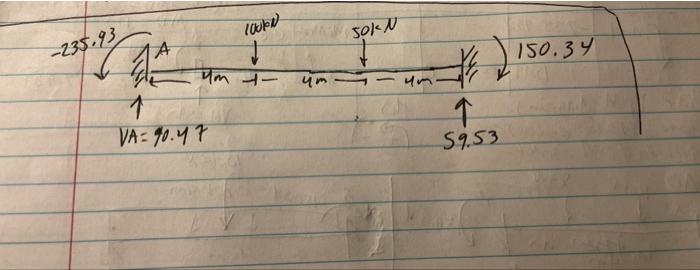 100kN
50kN
-235.93
A
150.34
4m
4m
4m
VA = 90.47
59.53